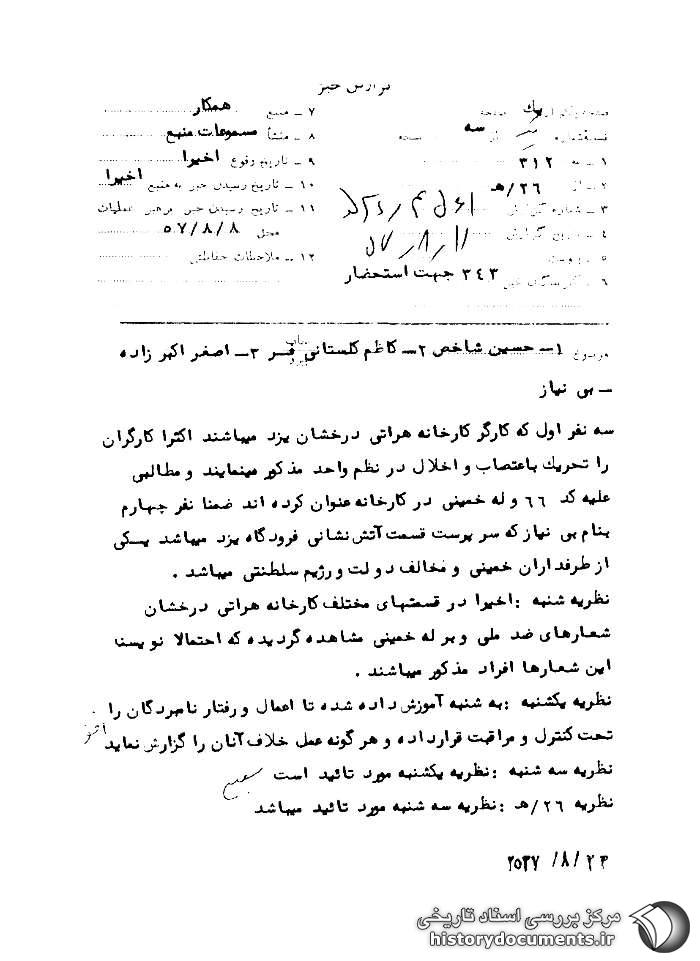 گزارش خبر
صفحه یک از صفحه
نسخه شماره از سه نسخه
۱ - به ۳۱۲
۲ - از ۲۶/هـ
۳ - شماره گزارش
۴ - تاریخ گزارش ۵۷/۸/۱۱
۵ - پیوست
۶ - گیرندگان خبر ۳۴۳ جهت استحضار
۷ - منبع همکار
۸ - منشأ مسموعات منبع
۹ - تاریخ وقوع اخیرا
۱۰ - تاریخ رسیدن خبر به منبع اخیرا
۱۱ - تاریخ رسیدن خبر برهبر عملیات
محل ۵۷/۸/۸
۱۲ - ملاحظات حفاظتی
موضوع ۱- حسین شاخص ۲- کاظم گلستانی فر ۳- اصغر اکبر زاده
- بی نیاز
سه نفر اول که کارگر کارخانه هراتی درخشان یزد میباشند اکثرا کارگران
را تحریك باعتصاب و اخلال در نظم واحد مذکور مینمایند و مطالبی
علیه کد ۶۶ و له خمینی در کارخانه عنوان کرده اند ضمنا نفر چهارم
بنام بی نیاز که سر پرست قسمت آتش نشانی فرودگاه یزد میباشد یکی
از طرفداران خمینی و مخالف دولت و رژیم سلطنتی میباشد .
نظریه شنبه : اخیرا در قسمتهای مختلف کارخانه هراتی درخشان
شعارهای ضد ملی و بر له خمینی مشاهده گردیده که احتمالا نویسنده
این شعارها افراد مذکور میباشند .
نظریه یکشنبه : به شنبه آموزش داده شده تا اعمال و رفتار نامبردگان را
تحت کنترل و مراقبت قرار داده و هر گونه عمل خلاف آنان را گزارش نماید
نظریه سه شنبه : نظریه یکشنبه مورد تائید است
نظریه ۲۶/هـ : نظریه سه شنبه مورد تائید میباشد
۲۵۳۷/۸/۲۳
مرکز بررسی اسناد تاریخی
historydocuments.ir